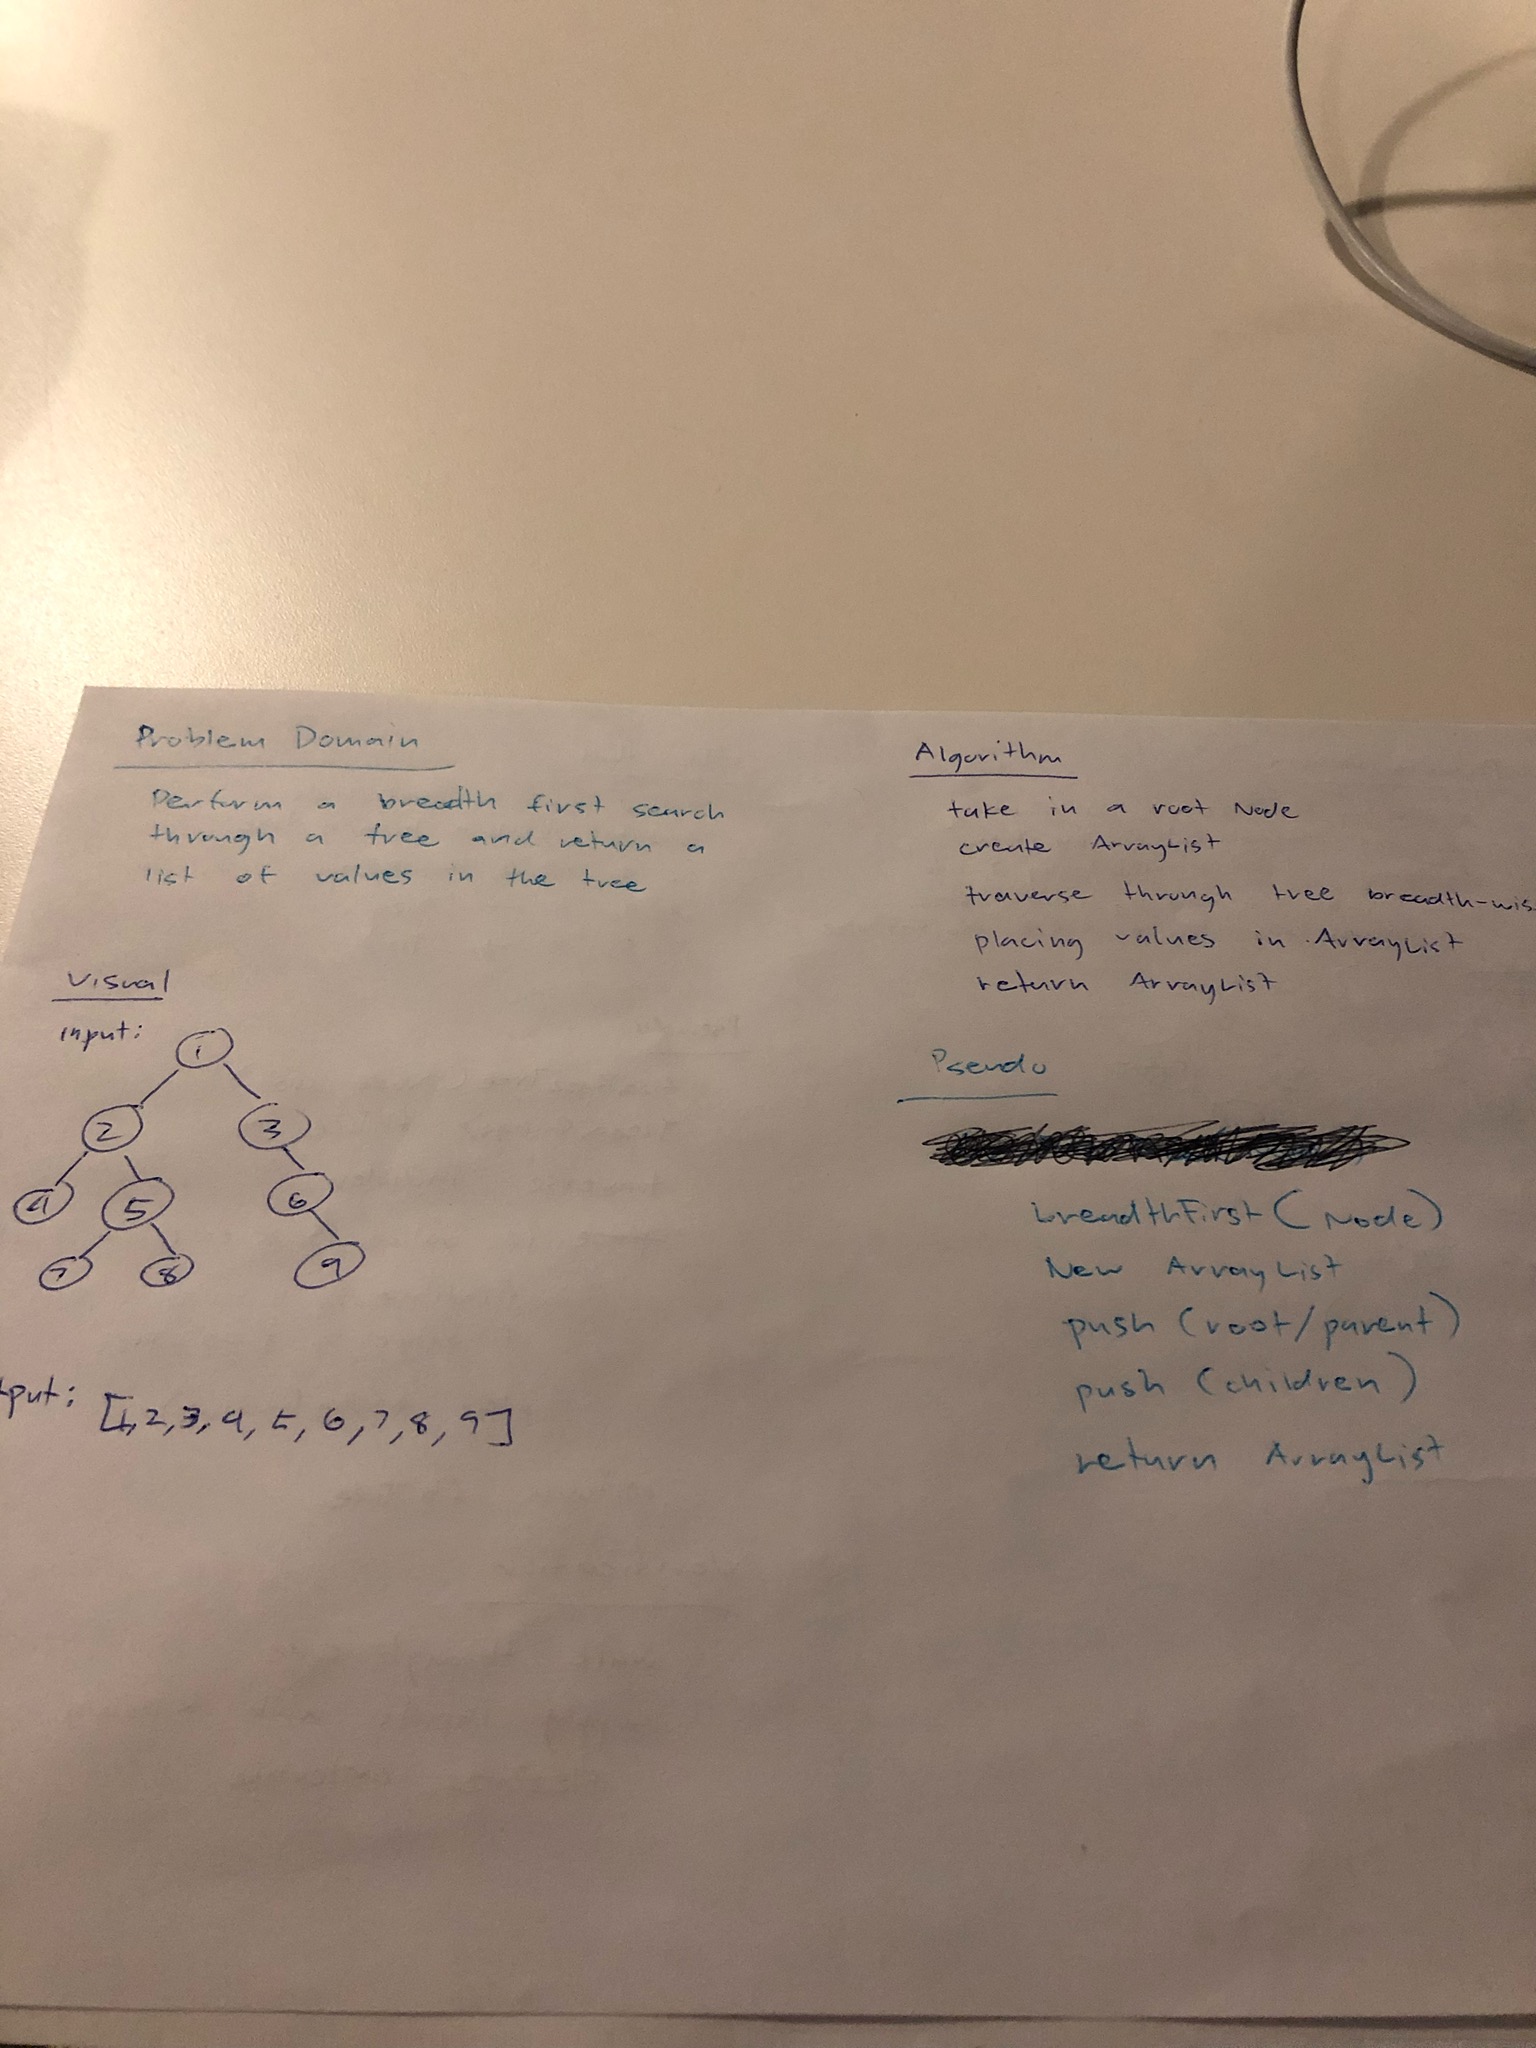 Problem Domain
Perform a breadth first search
through a tree and return a
list of values in the tree
Visual
input:
1
2 3
4 5 6
7 8 9
tput: [1,2,3,4,5,6,7,8,9]
Algorithm
take in a root Node
create ArrayList
traverse through tree breadth-wis
placing values in ArrayList
return ArrayList
Pseudo
breadthFirst(Node)
New ArrayList
push (root/parent)
push (children)
return ArrayList